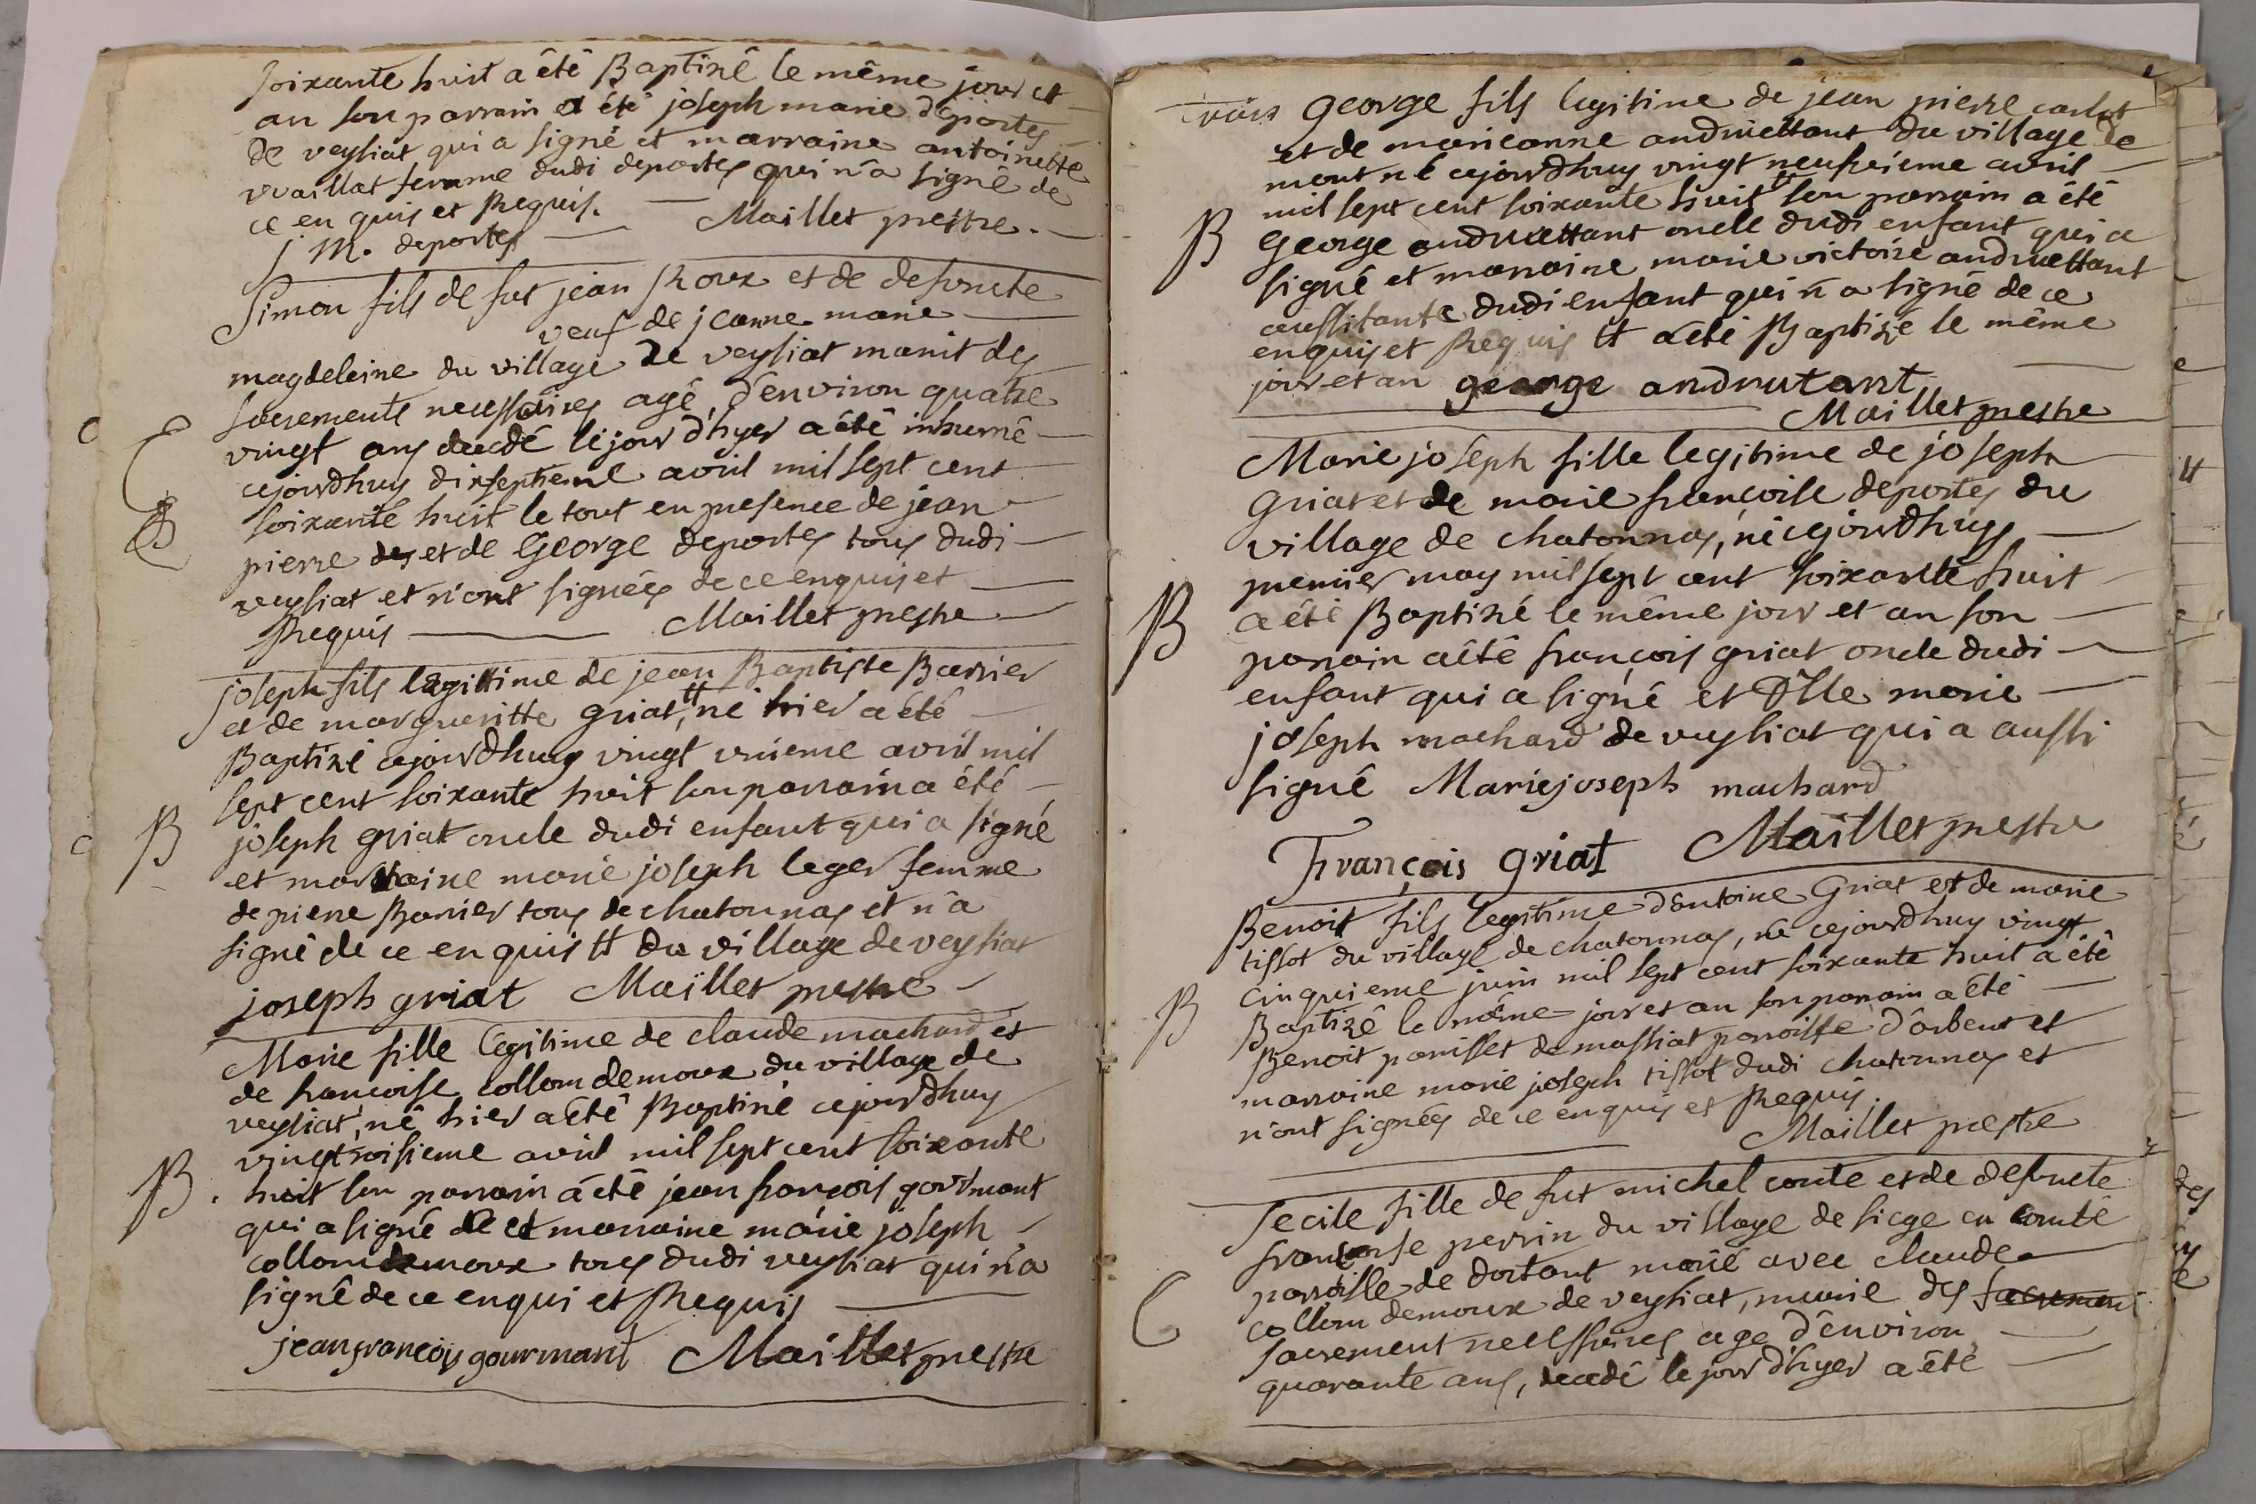 soixante huit a été Baptizé le même jour et
an son parrain a été joseph marie déportes
de veysiat qui a signé et marraine antoinette
vuaillat femme dudi deportes qui n'a signé de
ce en quis et Requis. Maillet prestre.
J M. deportes
Simon fils de fut jean Roux et de defuncte
veuf de jeanne marie
magdeleine du village de veysiat munit des
sacrements necessaires agé d'environ quatre
vingt ans decedé le jour d'hyer a été inhumé
cejourdhuy dixseptieme avril mil sept cent
soixante huit le tout en presence de jean
pierre des et de George deportes tous dudi
veysiat et n'ont signées de ce enquis et
Requis Maillet prestre
joseph fils legittime de jean Baptiste Barrier
et de margueritte griat, tt né hier a été
Baptizé cejourdhuy vingt unieme avril mil
sept cent soixante huit son parrain a été
B
joseph griat oncle dudi enfant qui a signé
et marraine marie joseph leger femme
de pierre Barrier tous de chatonnas et n'a
signé de ce en quis tt du village de veysiat
joseph griat Maillet prestre
Marie fille legitime de claude machard et
de francoise collomdemoux du village de
veysiat, né hier a été Baptizé cejourdhuy
vingt troisieme avril mil sept cent soixante
B.
huit son parrain a été jean françois gourmant
qui a signé de et marraine marie joseph
collomdemoux tous dudi veysiat qui n'a
signé de ce enqui et Requis
jean françois gourmant Maillet prestre
George fils legitime de jean pierre carlot
et de marieanne andruettant du village de
mont né cejourdhuy vingt neufvieme avril
mil sept cent soixante huit tt son parrain a été
B
George andruettant oncle dudi enfant qui a
signé et marraine marie victoire andruettant
aussi tante dudi enfant qui n'a signé de ce
enquis et Requis tt a été Baptizé le même
jour et an george andrutant
Maillet prestre
Marie joseph fille legitime de joseph
Griat et de marie françoise deportes du
village de chatonnas, né cejourdhuy
premier may mil sept cent soixante huit
B
a été Baptizé le même jour et an son
parrain a été françois griat oncle dudi
enfant qui a signé et Dlle marie
joseph machard de veysiat qui a aussi
signé Marie joseph machard
François griat Maillet prestre
Benoit fils legitime d'entoine Griat et de marie
tissot du village de chatonnas, né cejourdhuy vingt
cinquieme juin mil sept cent soixante huit a été
B
Baptizé le même jour et an son parrain a été
Benoit panisset de massiat parroisse d'arbent et
marraine marie joseph tissot dudi chatonnas et
n'ont signées de ce enquis et Requis.
Maillet prestre
Secile fille de fut michel conte et de defuncte
francoise perrin du village de siege en comté
parroisse de dortant marié avec claude
collom demoux de veysiat, munie des sacrement
sacrement necessaires age d'environ
quarante ans, decedé le jour d'hyer a été